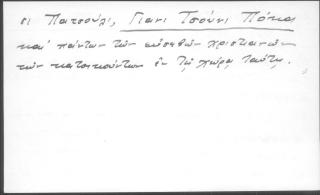 δι Πατσούλι, Γιάνι Τσόνι Πόκα
καί πάντων τῶν εὐσεβῶν χριστιανῶν
τῶν κατοικούντων ἐν τῇ χώρᾳ ταύτῃ.